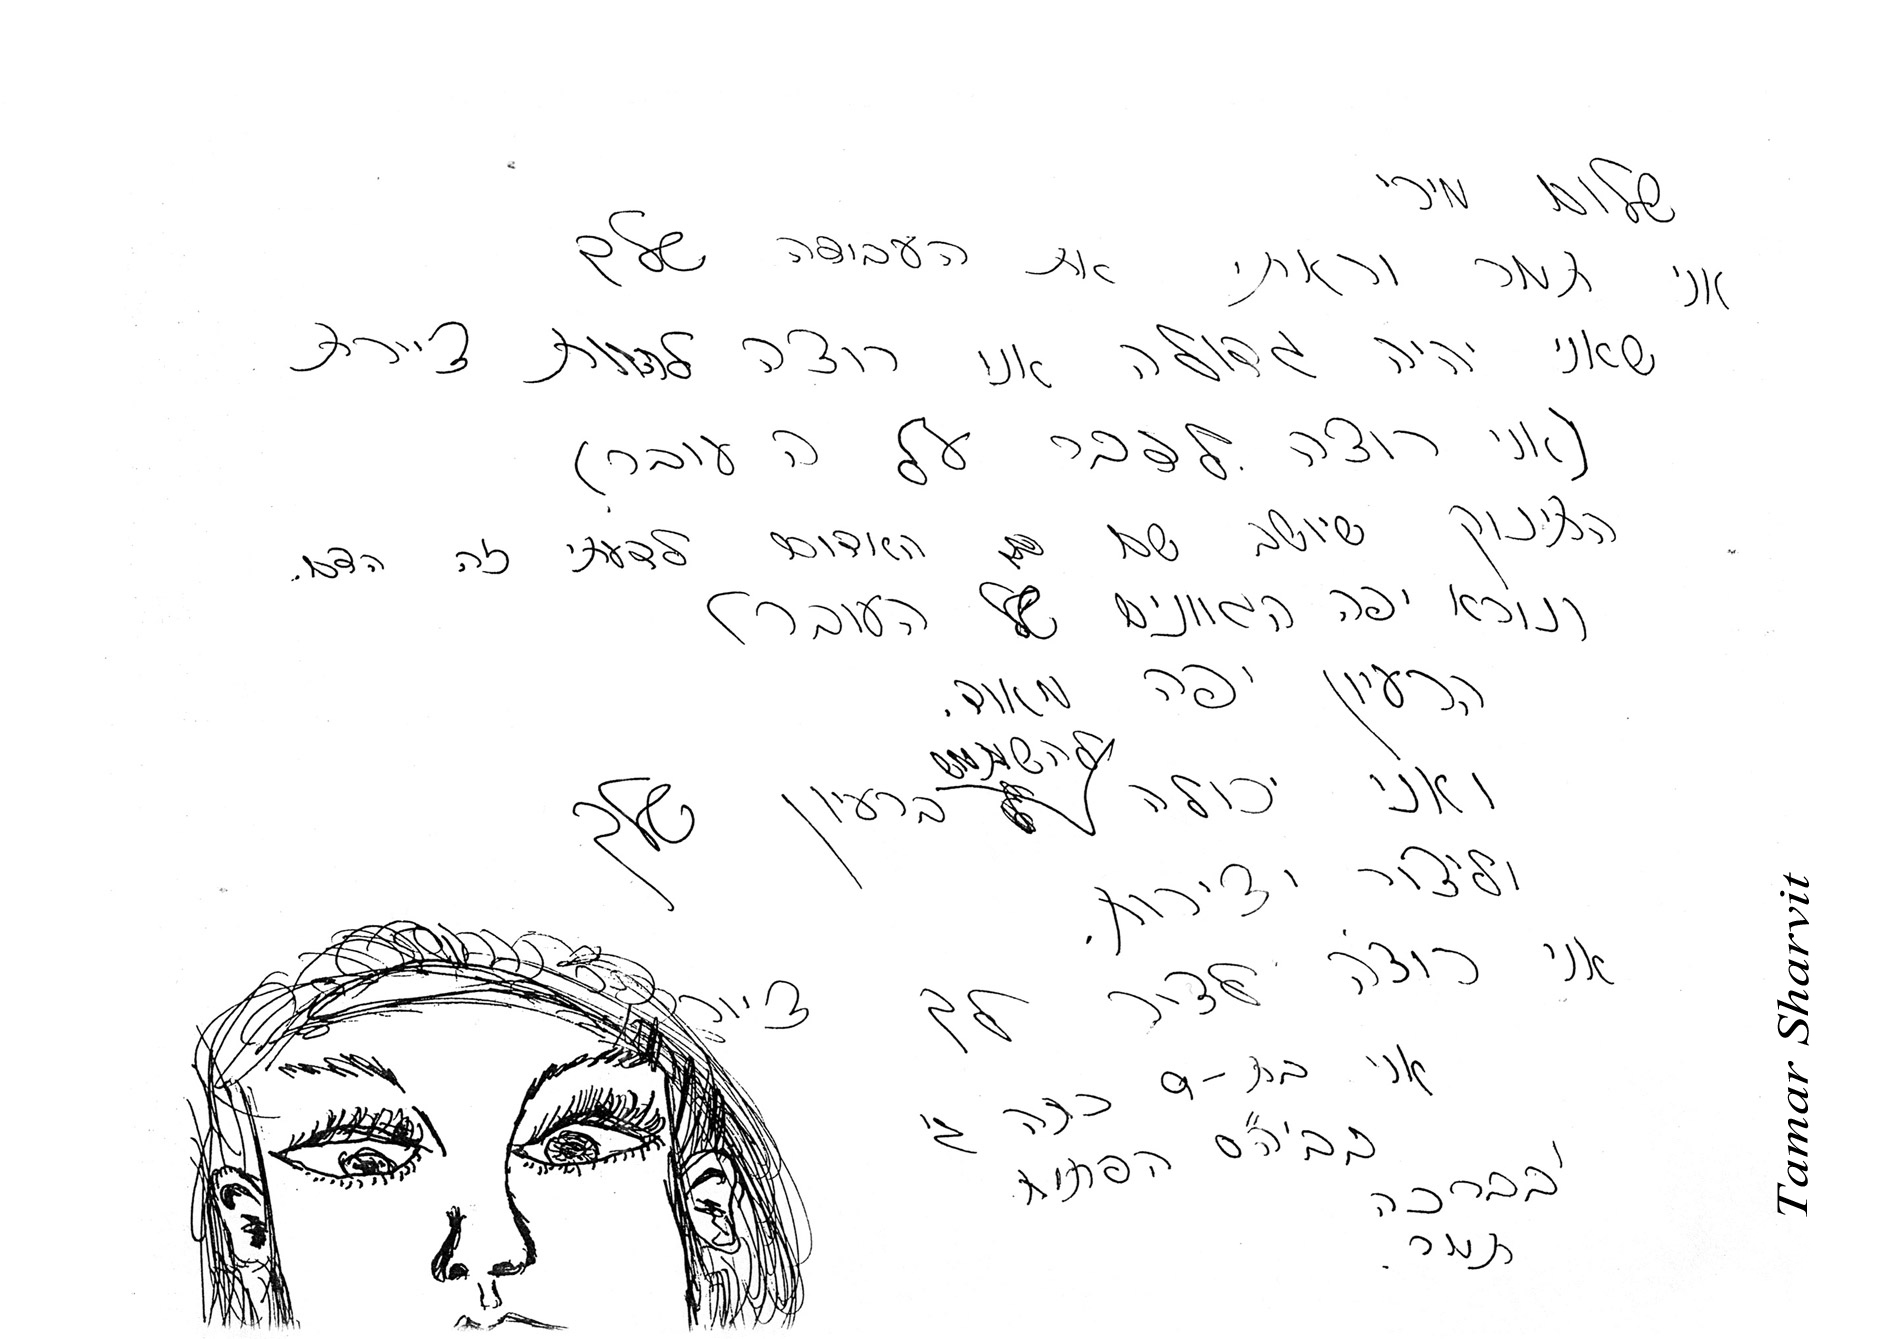 שלום מירי
אני תמר וראתי את העבודה שלך
שאני יהיה גדולה אני רוצה להיות ציירת
(אני רוצה לדבר על ה עובר)
התינוק שיושב שם האדום לדעתי זה הדם.
ונורא יפה הגוונים של העובר
הרעיון יפה מאוד.
להשתמש
ואני יכולה ברעיון שלך
וליצור יצירות.
אני רוצה לציר לך ציור
אני בת-9 כתה
בבי"הס הפתוח
בברכה
תמר.
Tamar Sharvit